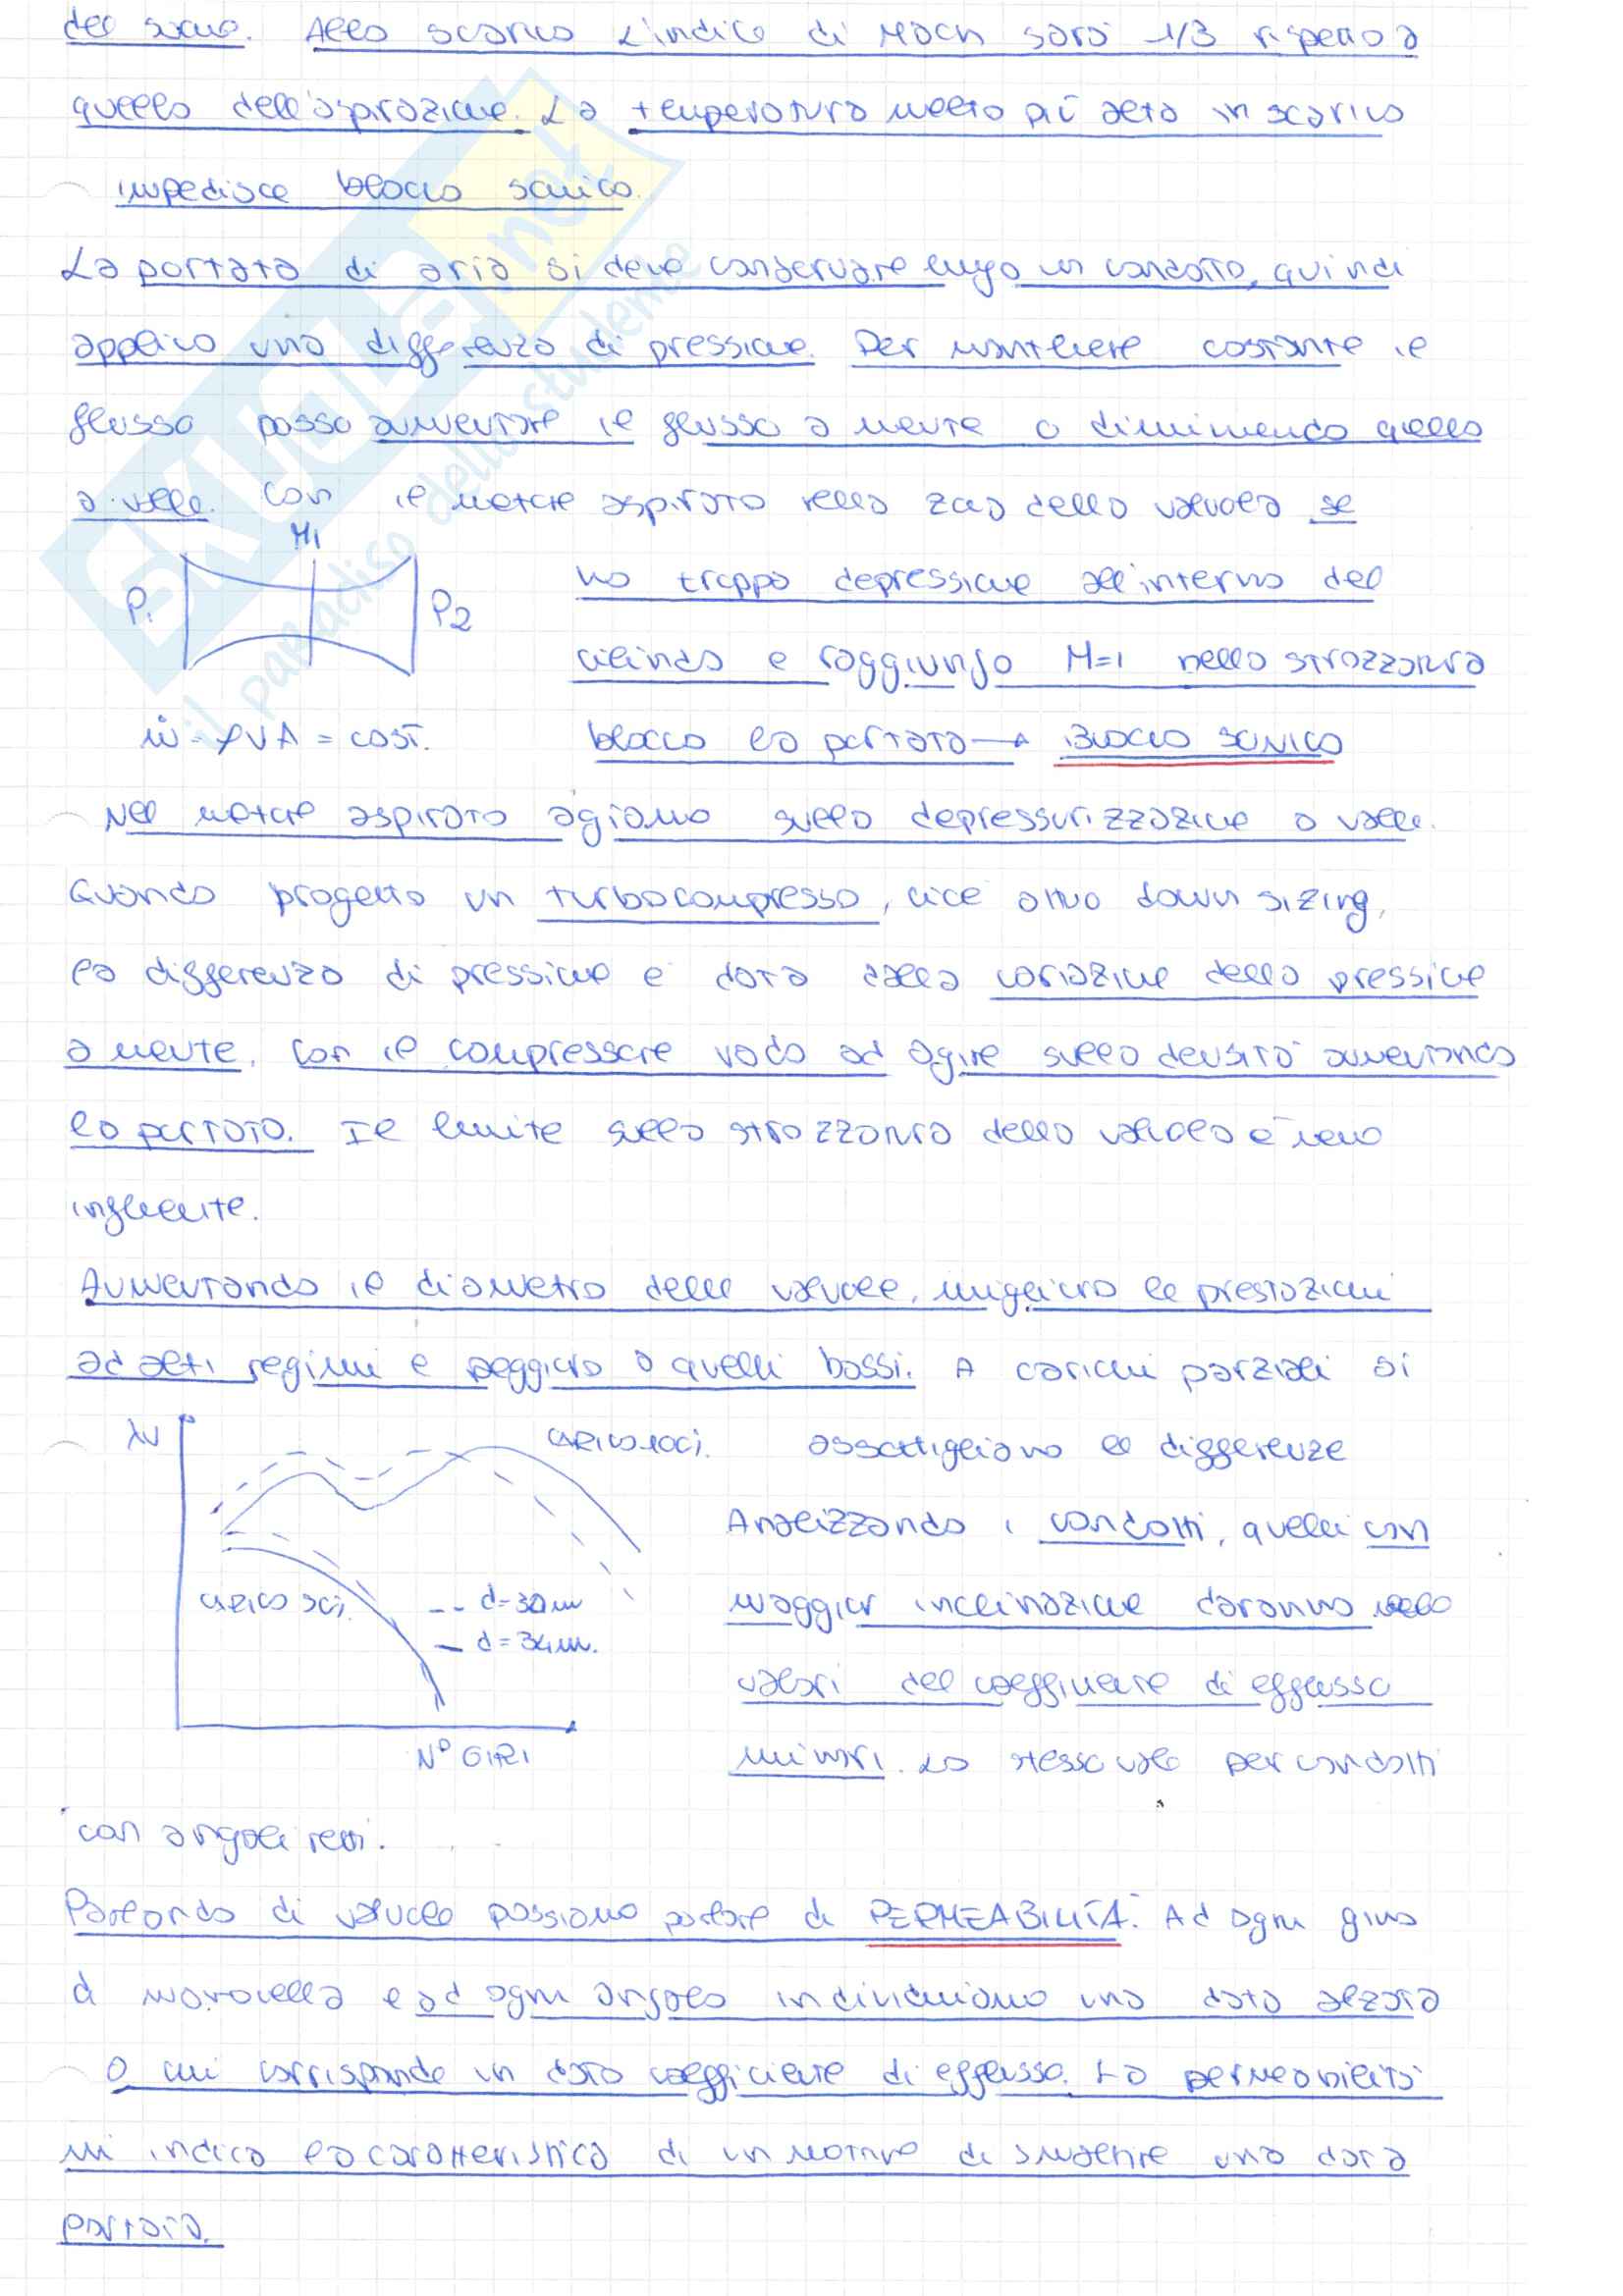 del suono. Allo scarico l'indice di Mach sarà 1/3 rispetto a
quello dell'aspirazione. La temperatura molto più alta in scarico
impedisce blocco sonico.
La portata di aria si deve conservare lungo un condotto, quindi
applico una differenza di pressione. Per mantenere costante il
flusso posso aumentare il flusso a monte o diminuendo quello
a valle. Con il motore aspirato nella zona della valvola se
M1
P1
P2
ho troppa depressione all'interno del
cilindro e raggiungo M=1 nella strozzatura
ṁ = ρVA = COST.
blocco la portata → BLOCCO SONICO
Nel motore aspirato agiamo sulla depressurizzazione a valle.
Quando progetto un turbocompresso, cioè attuo down sizing,
la differenza di pressione è data dalla variazione della pressione
a monte. Con il compressore vado ad agire sulla densità aumentando
la portata. Il limite sulla strozzatura della valvola è meno
influente.
Aumentando il diametro delle valvole, miglioro le prestazioni
ad alti regimi e peggioro a quelli bassi. A carichi parziali si
λv
CARICO 100%.
assottigliano le differenze
Analizzando i condotti, quelli con
CARICO
-- d=30mm
— d=34mm.
maggior inclinazione daranno
valori del coefficiente di efflusso
minori. Lo stesso vale per condotti
N° GIRI
con angoli retti.
Parlando di valvole possiamo parlare di PERMEABILITÀ. Ad ogni giro
di manovella e ad ogni angolo individuiamo una data alzata
a cui corrisponde un dato coefficiente di efflusso. La permeabilità
mi indica la caratteristica di un motore di smaltire una data
portata.
SKUOLA.net
il paradiso dello studente